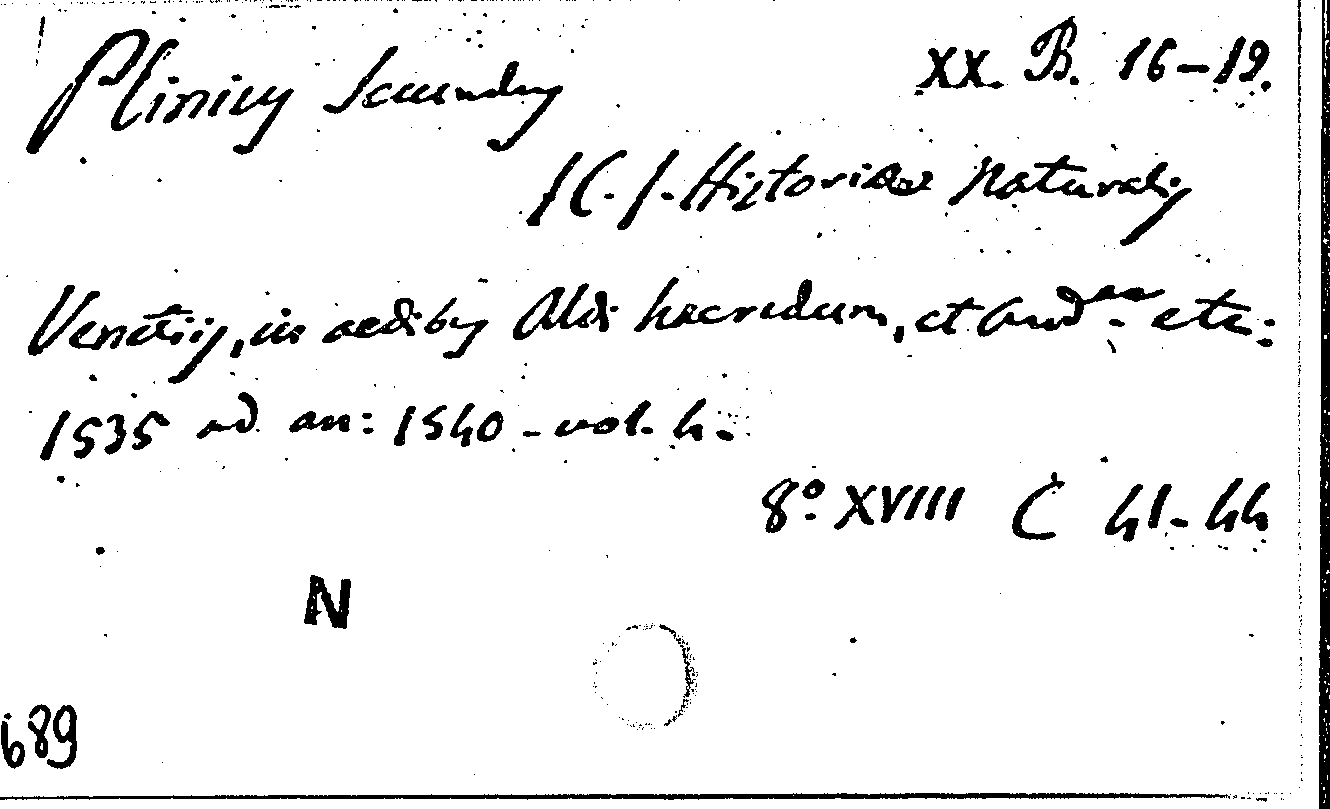 Plinius Secundus XX. B. 16-19.
/C./-Historiae Naturalis
Venetiis, in aedibus Aldi haeredum, et And.ae etc:
1535 ad an: 1540 - vol. 4.
8º XVIII C 41-44
N
689